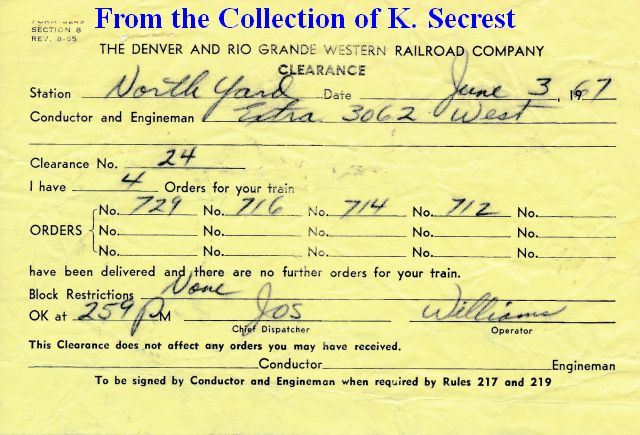 From the Collection of K. Secrest
FORM 3249
SECTION 8
REV. 8-55
THE DENVER AND RIO GRANDE WESTERN RAILROAD COMPANY
CLEARANCE
Station North Yard Date June 3, 1967
Conductor and Engineman Extra 3062 West
Clearance No. 24
I have 4 Orders for your train
No. 729 No. 716 No. 714 No. 712 No.
ORDERS No. No. No. No. No.
No. No. No. No. No.
have been delivered and there are no further orders for your train.
Block Restrictions None
OK at 259 P M JOS Williams
Chief Dispatcher Operator
This Clearance does not affect any orders you may have received.
Conductor Engineman
To be signed by Conductor and Engineman when required by Rules 217 and 219